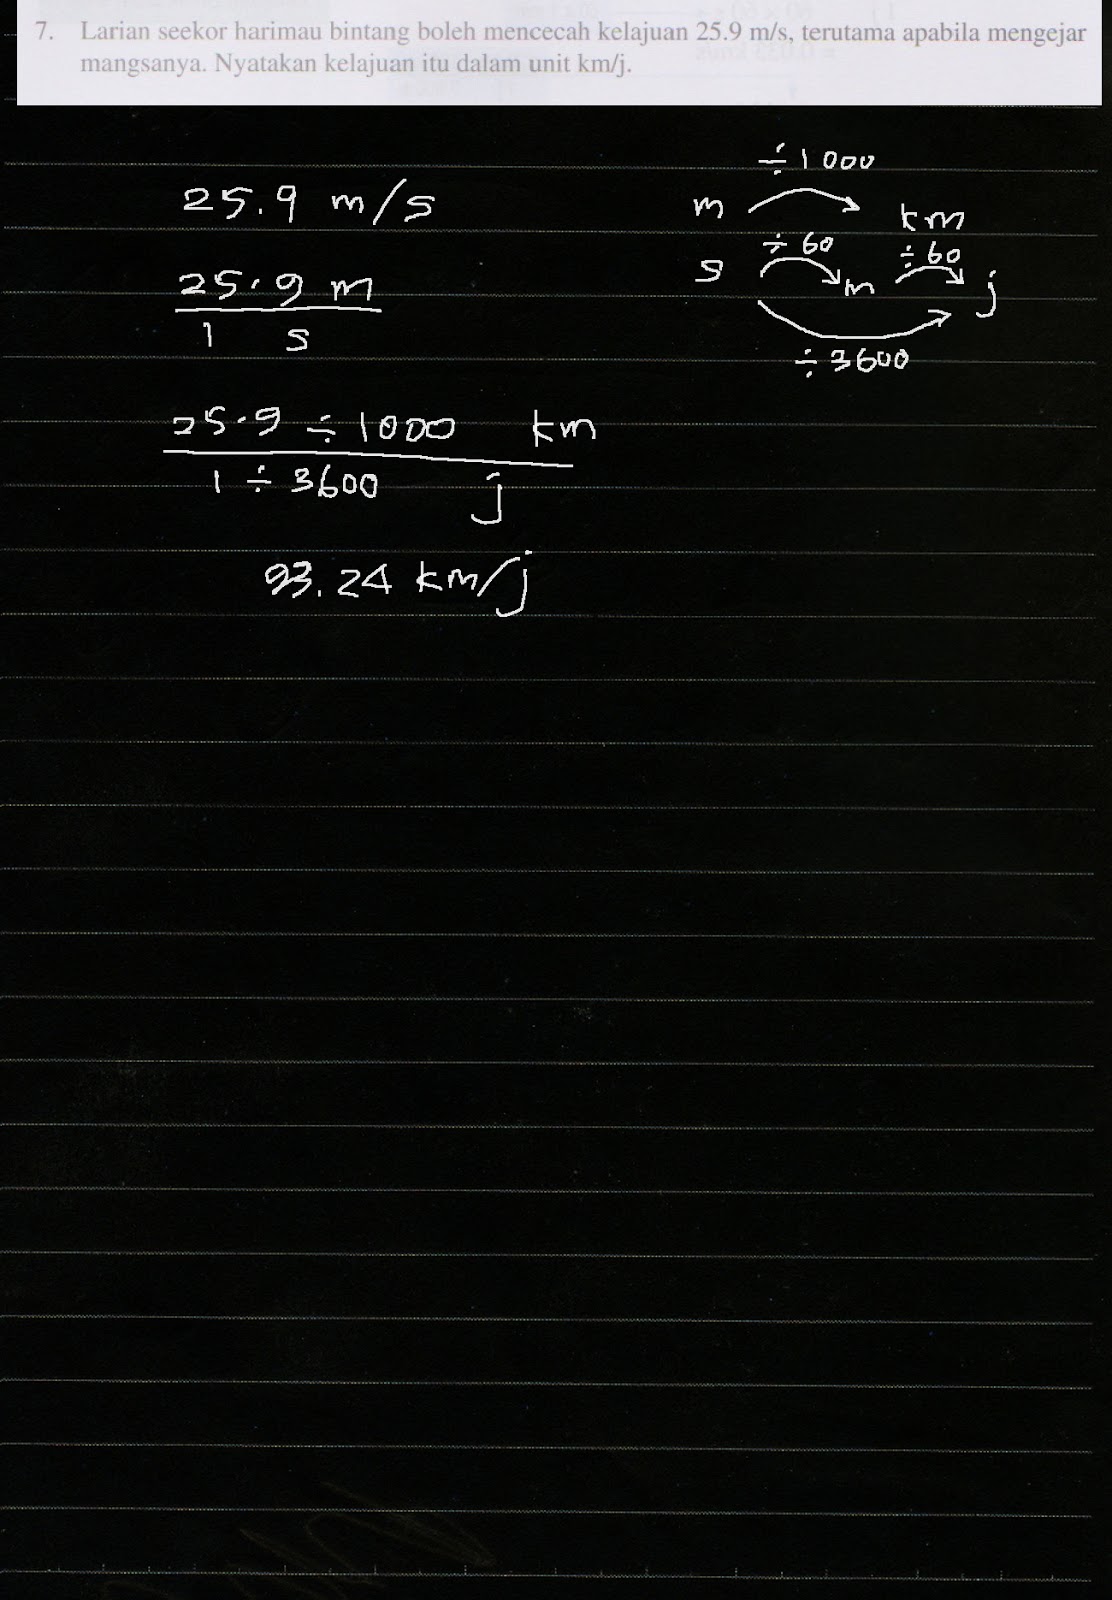 7. Larian seekor harimau bintang boleh mencecah kelajuan 25.9 m/s, terutama apabila mengejar
mangsanya. Nyatakan kelajuan itu dalam unit km/j.
25.9 m/s
25.9 m
1 s
25.9 ÷ 1000 km
1 ÷ 3600 j
93.24 km/j
÷ 1000
m km
÷ 60 ÷ 60
s m j
÷ 3600